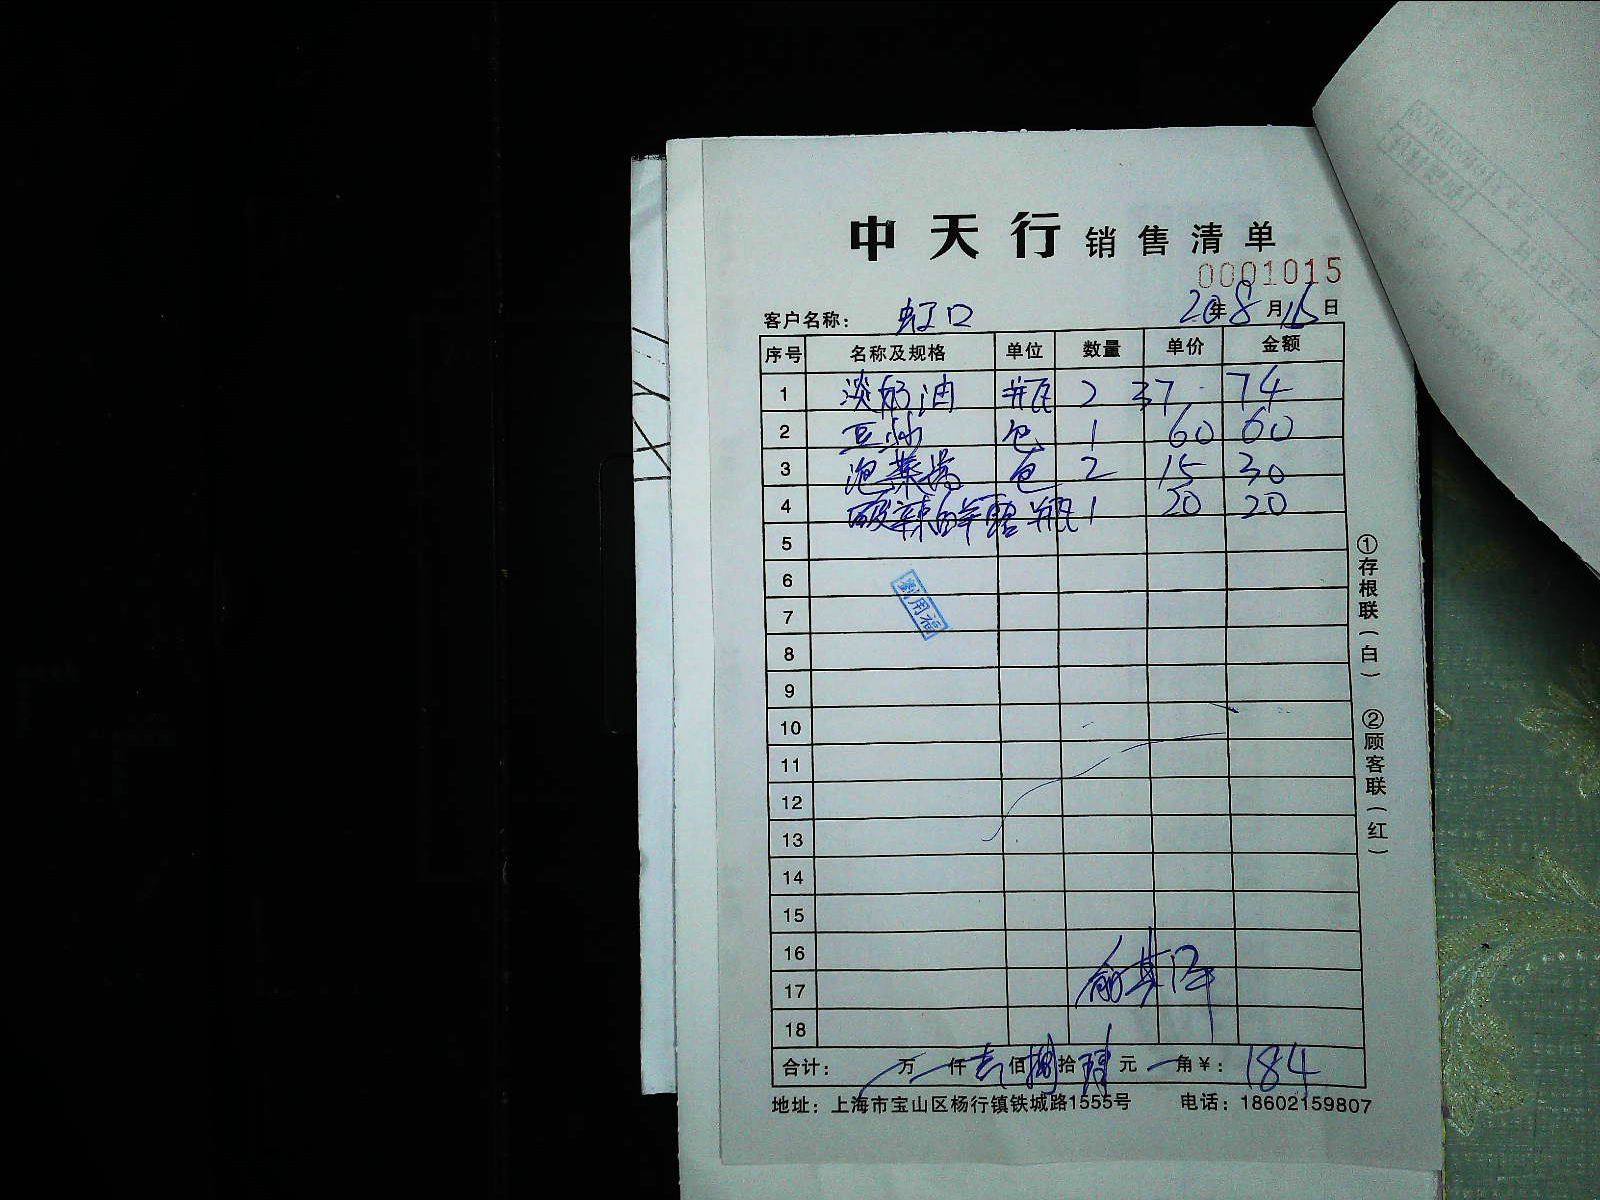 中天行 销售清单
0001015
客户名称： 虹口 20年8月16日
序号 名称及规格 单位 数量 单价 金额
1 淡奶油 瓶 2 37 74
2 豆沙 包 1 60 60
3 泡菜 包 2 15 30
4 酸辣鲜露 瓶 1 20 20
5
6
7
8
9
10
11
12
13
14
15
16
17
18
合计： 万 仟 壹佰捌拾肆元 角￥： 184
地址：上海市宝山区杨行镇铁城路1555号 电话：18602159807
①存根联（白） ②顾客联（红）